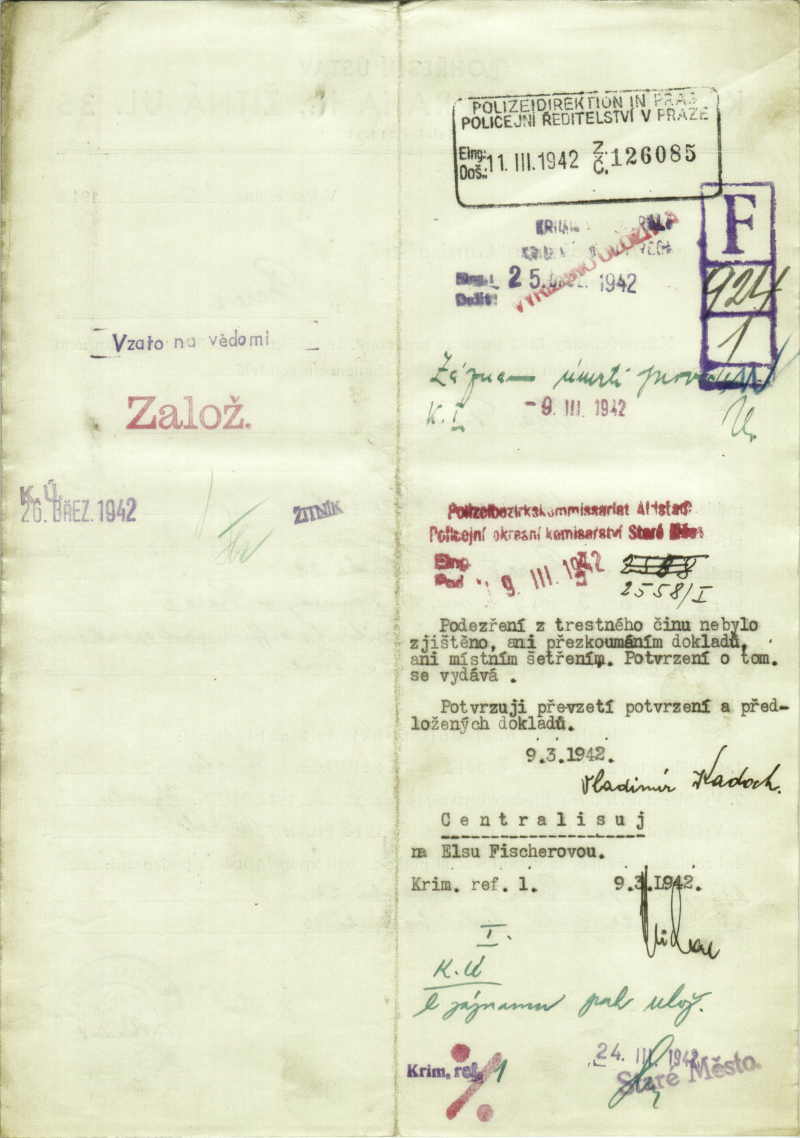 Vzato na vědomí
Založ.
K. Ú.
26. BŘEZ. 1942
ŽITNÍK
POLIZEIDIREKTION IN PRAG
POLICEJNÍ ŘEDITELSTVÍ V PRAZE
Eing:
Doš.:
11. III. 1942
Z.
Č. 126085
F
924
1
25. 1942
Záznam úmrtí
K. I.
-9. III. 1942
Polizeibezirkskommissariat Altstadt
Policejní okresní komisařství Staré Město
Eing.
Pod.
9. III. 1942
2558
2558/I
Podezření z trestného činu nebylo
zjištěno, ani přezkoumáním dokladů,
ani místním šetřením. Potvrzení o tom
se vydává .
Potvrzuji převzetí potvrzení a před-
ložených dokladů.
9.3.1942.
Vladimír Kadoch.
C e n t r a l i s u j
na Elsu Fischerovou.
Krim. ref. 1. 9.3.1942.
I.
K. Ú
k záznamu pak ulož.
Krim. ref. 1
24. III. 1942
Staré Město.